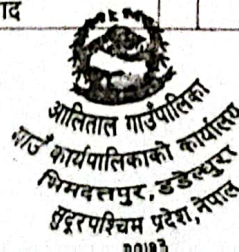 ाद
आलिताल गाउँपालिका
गाउँ कार्यपालिकाको कार्यालय
भिमदत्तपुर, डडेल्धुरा
सुदूरपश्चिम प्रदेश, नेपाल